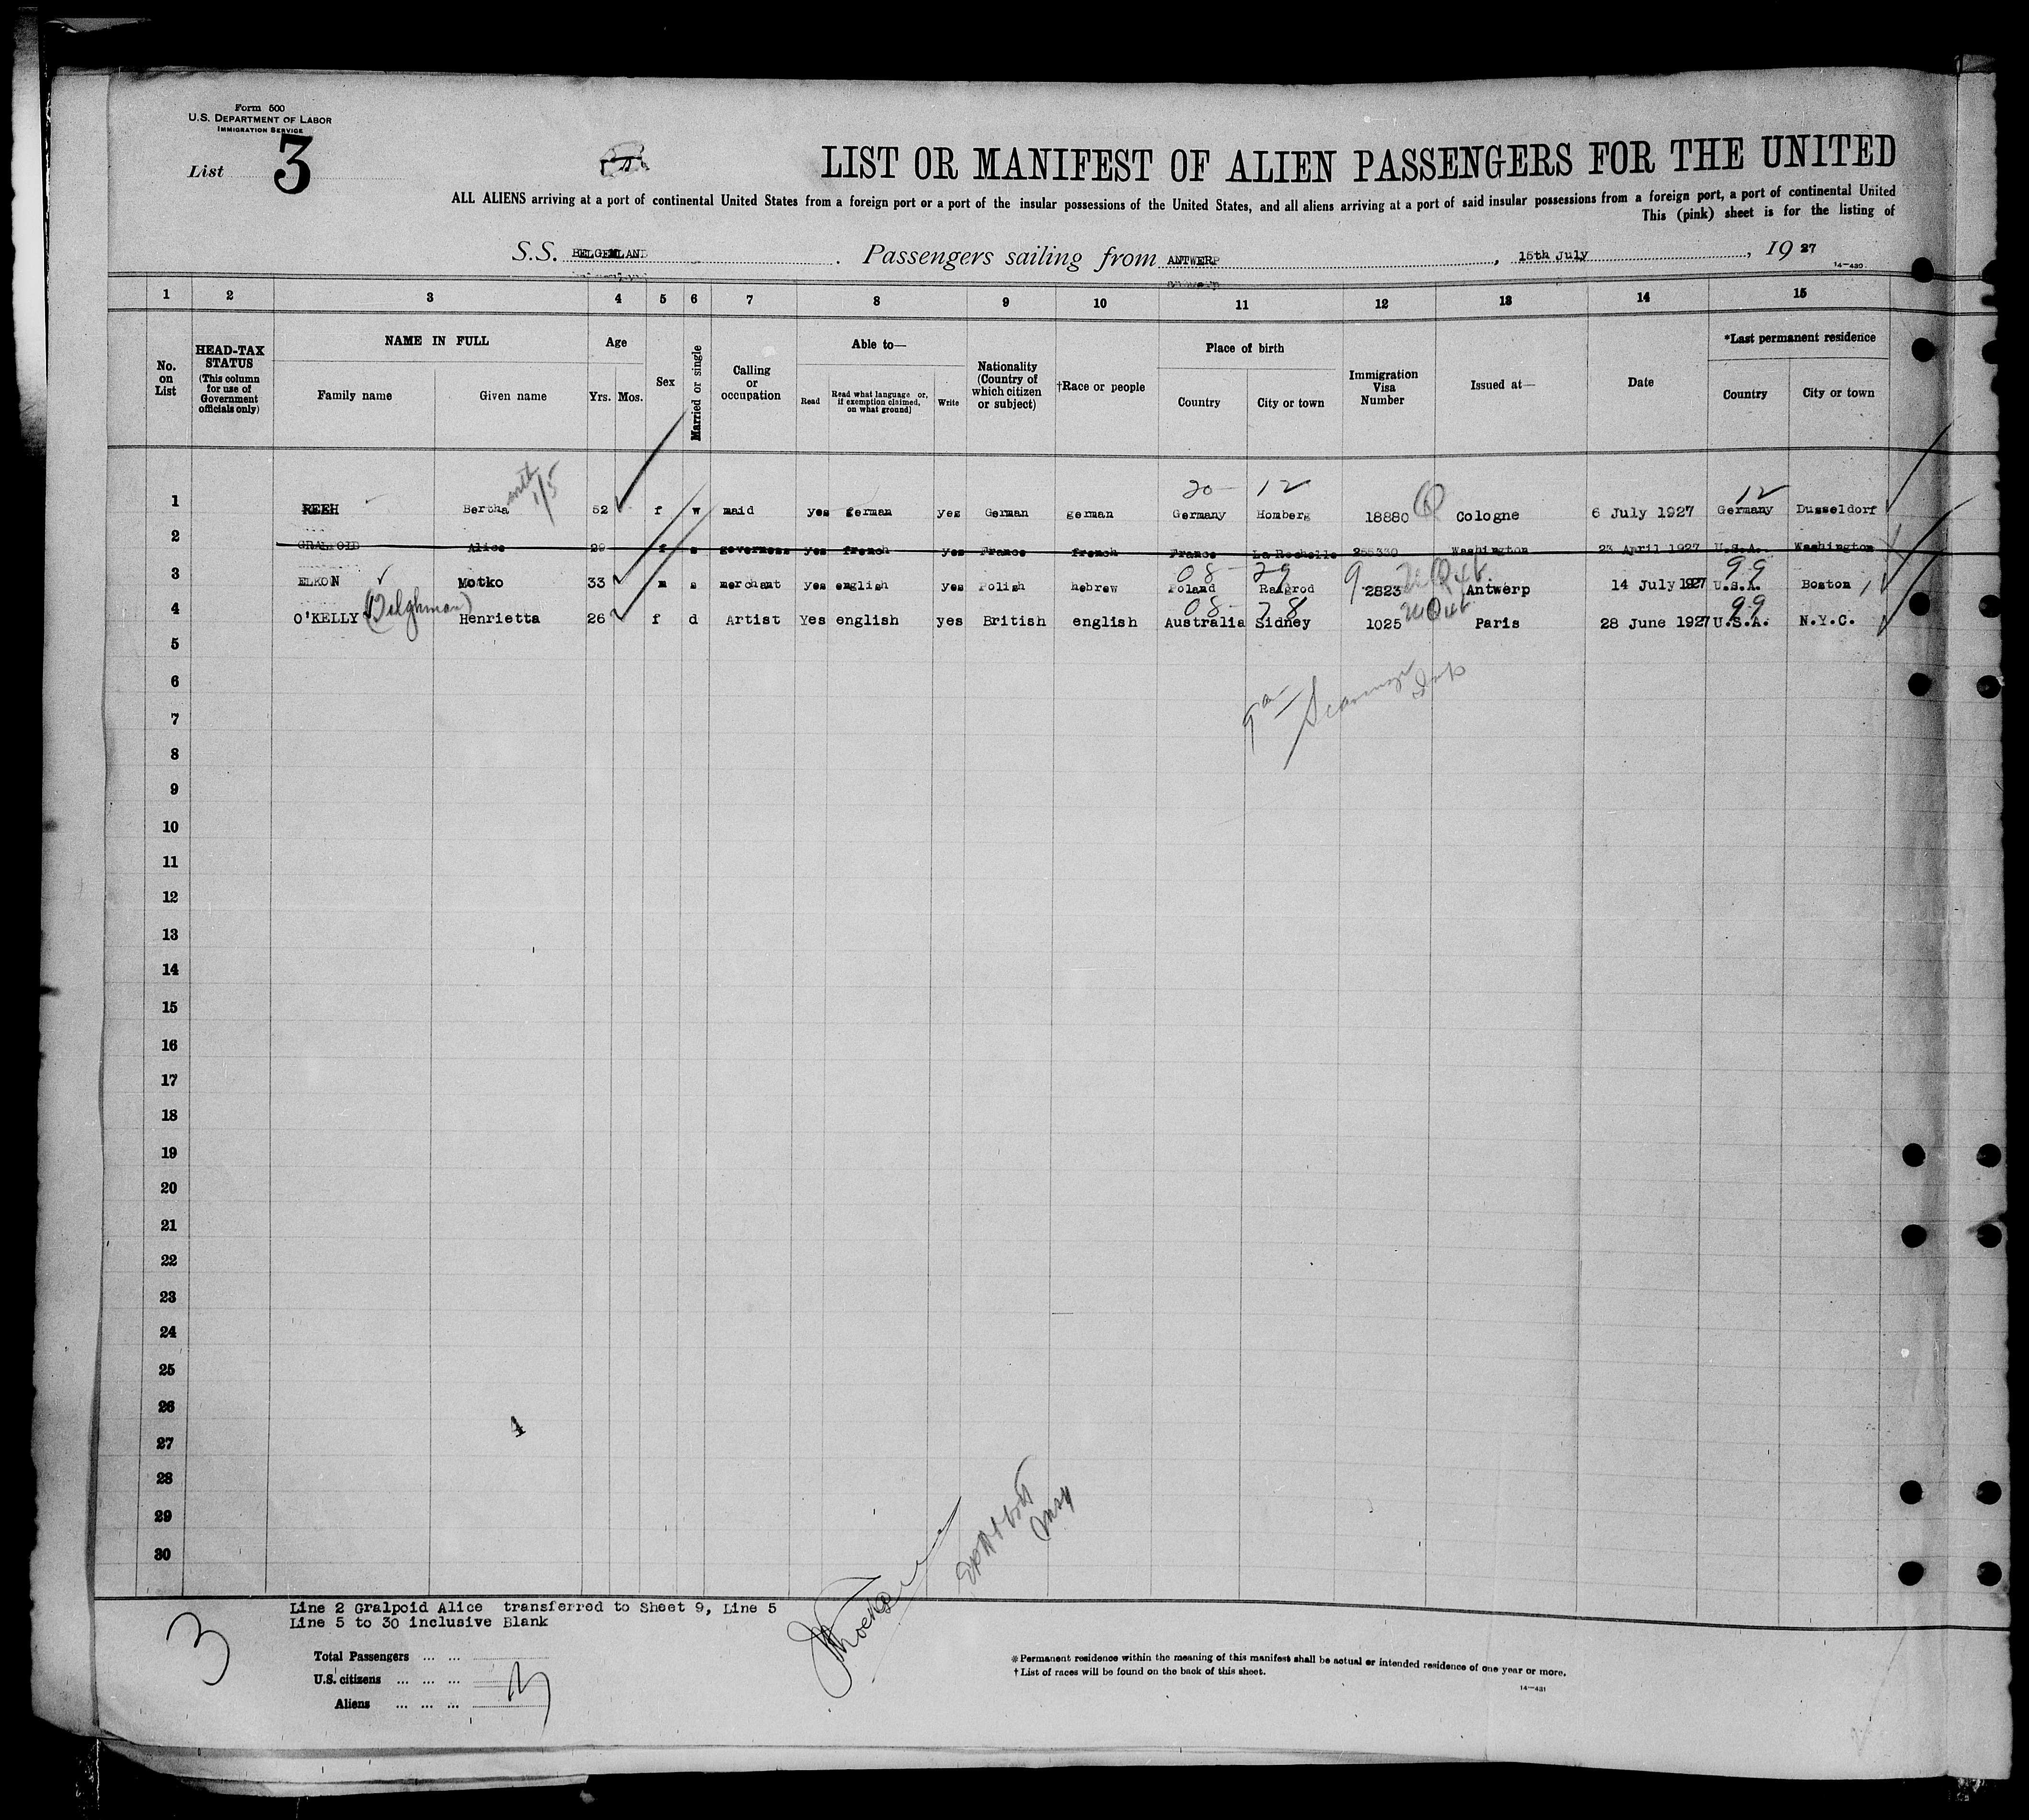 Form 500
U.S. DEPARTMENT OF LABOR
IMMIGRATION SERVICE
List 3
LIST OR MANIFEST OF ALIEN PASSENGERS FOR THE UNITED
ALL ALIENS arriving at a port of continental United States from a foreign port or a port of the insular possessions of the United States, and all aliens arriving at a port of said insular possessions from a foreign port, a port of continental United
This (pink) sheet is for the listing of
S.S. BELGENLAND. Passengers sailing from ANTWERP, 15th July, 1927
14-430
1 2 3 4 5 6 7 8 9 10 11 12 13 14 15
No. on List
HEAD-TAX STATUS (This column for use of Government officials only)
NAME IN FULL
Family name Given name
Age
Yrs. Mos.
Sex
Married or single
Calling or occupation
Able to—
Read Read what language or, if exemption claimed, on what ground] Write
Nationality (Country of which citizen or subject)
†Race or people
Place of birth
Country City or town
Immigration Visa Number
Issued at—
Date
*Last permanent residence
Country City or town
20 12 12
1 REEH Bertha 52 f w maid yes german yes German german Germany Homberg 18880 Cologne 6 July 1927 Germany Dusseldorf
2 GRALPOID Alice 29 f s governess yes french yes France french France La Rochelle 255330 Washington 23 April 1927 U.S.A. Washington
08 29 99
3 ELKON Motko 33 m s merchant yes english yes Polish hebrew Poland Ragrod 2823 Antwerp 14 July 1927 U.S.A. Boston
08 28 99
4 O'KELLY Henrietta 26 f d Artist Yes english yes British english Australia Sidney 1025 Paris 28 June 1927 U.S.A. N.Y.C.
5
6
7
8
9
10
11
12
13
14
15
16
17
18
19
20
21
22
23
24
25
26
27
28
29
30
3
Line 2 Gralpoid Alice transferred to Sheet 9, Line 5
Line 5 to 30 inclusive Blank
Total Passengers ... ...
U.S. citizens ... ... ...
Aliens ... ... ... 3
*Permanent residence within the meaning of this manifest shall be actual or intended residence of one year or more.
†List of races will be found on the back of this sheet.
14-431